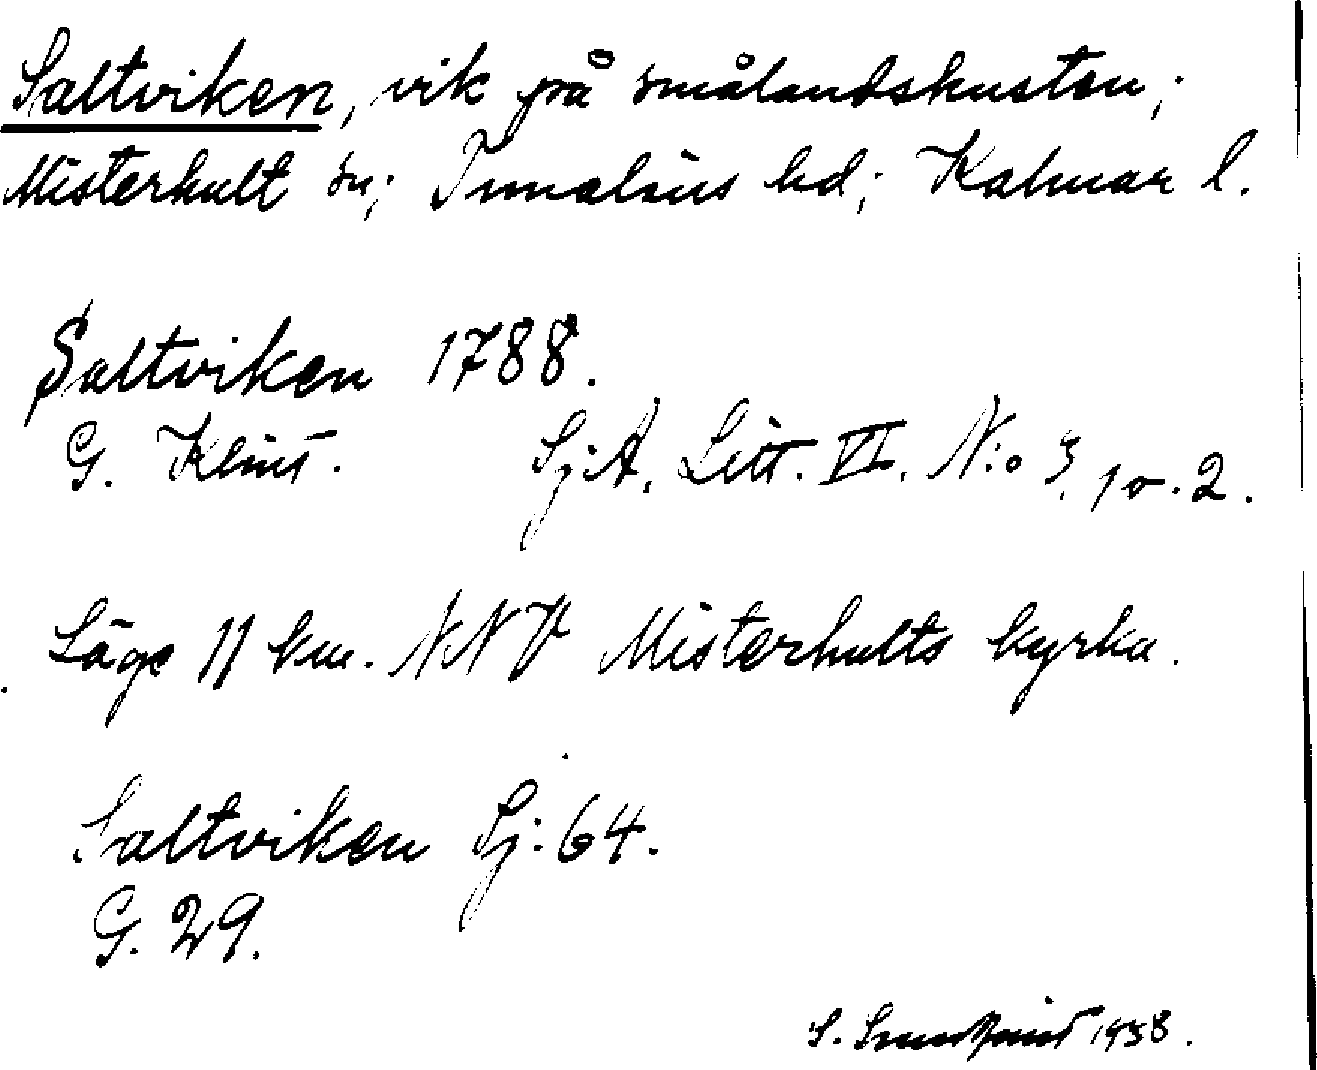 Saltviken, vik på smålandskusten;
Misterhult sn; Tunaläns hd; Kalmar l.
Saltviken 1788.
G. Klint. Sj.A, Litt. VI. N:o 3, 1 o. 2.
Läge 11 km. NNV Misterhults kyrka.
Saltviken Sj: 64.
G. 29.
S. 1938.